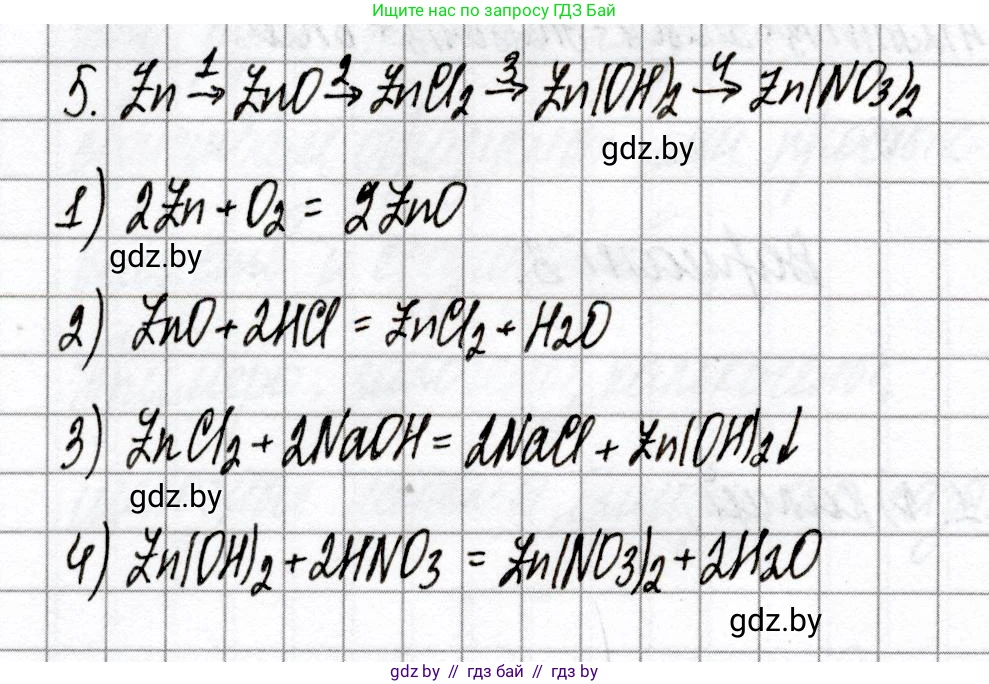 Ищите нас по запросу ГДЗ Бай
5. Zn →1 ZnO →2 ZnCl2 →3 Zn(OH)2 →4 Zn(NO3)2
gdz.by
1) 2Zn + O2 = 2ZnO
gdz.by
2) ZnO + 2HCl = ZnCl2 + H2O
3) ZnCl2 + 2NaOH = 2NaCl + Zn(OH)2↓
gdz.by
4) Zn(OH)2 + 2HNO3 = Zn(NO3)2 + 2H2O
gdz.by
gdz.by // гдз бай // гдз by